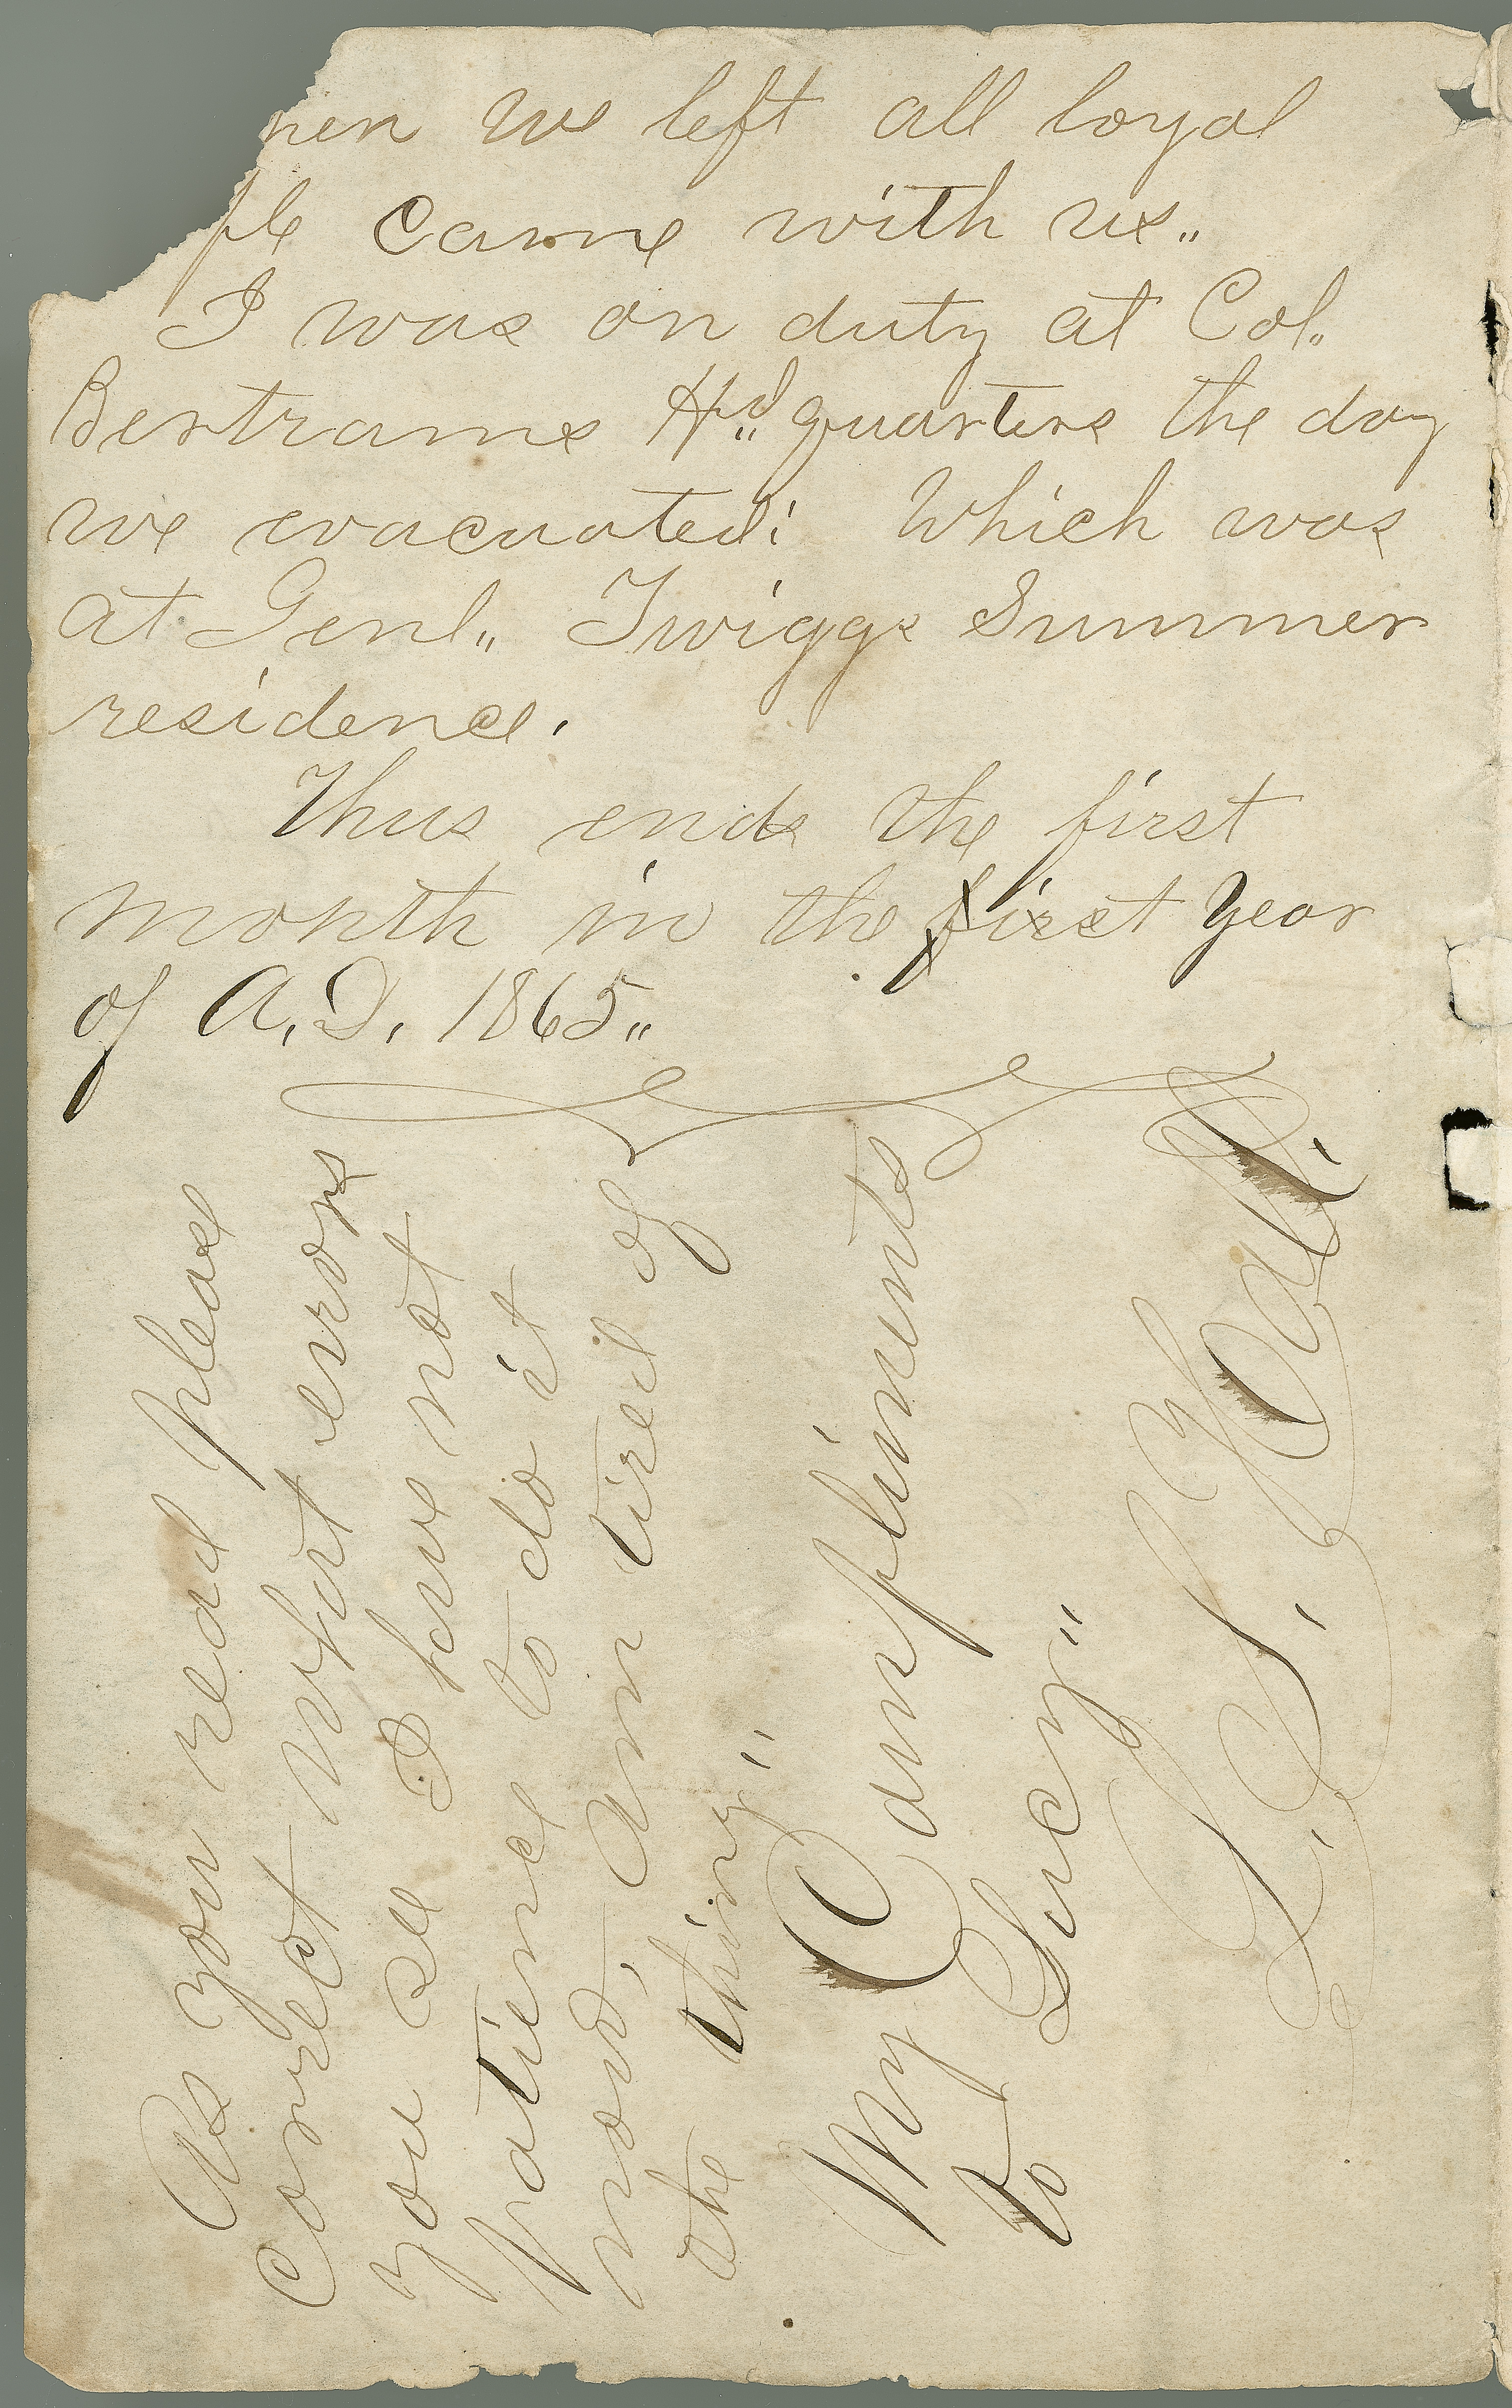 hen we left all loyal
ple came with us„
I was on duty at Col„
Bertrams Hd„ quarters the day
we evacuated; Which was
at Genl„ Twiggs Summer
residence.
Thus ends the first
month in the first Year
of A.D. 1865„
As you read please
correct what errors
you see I have not
patience to do it
now, am tired of
the thing"
My Compliments
to Lucy"
L. S. Hall.